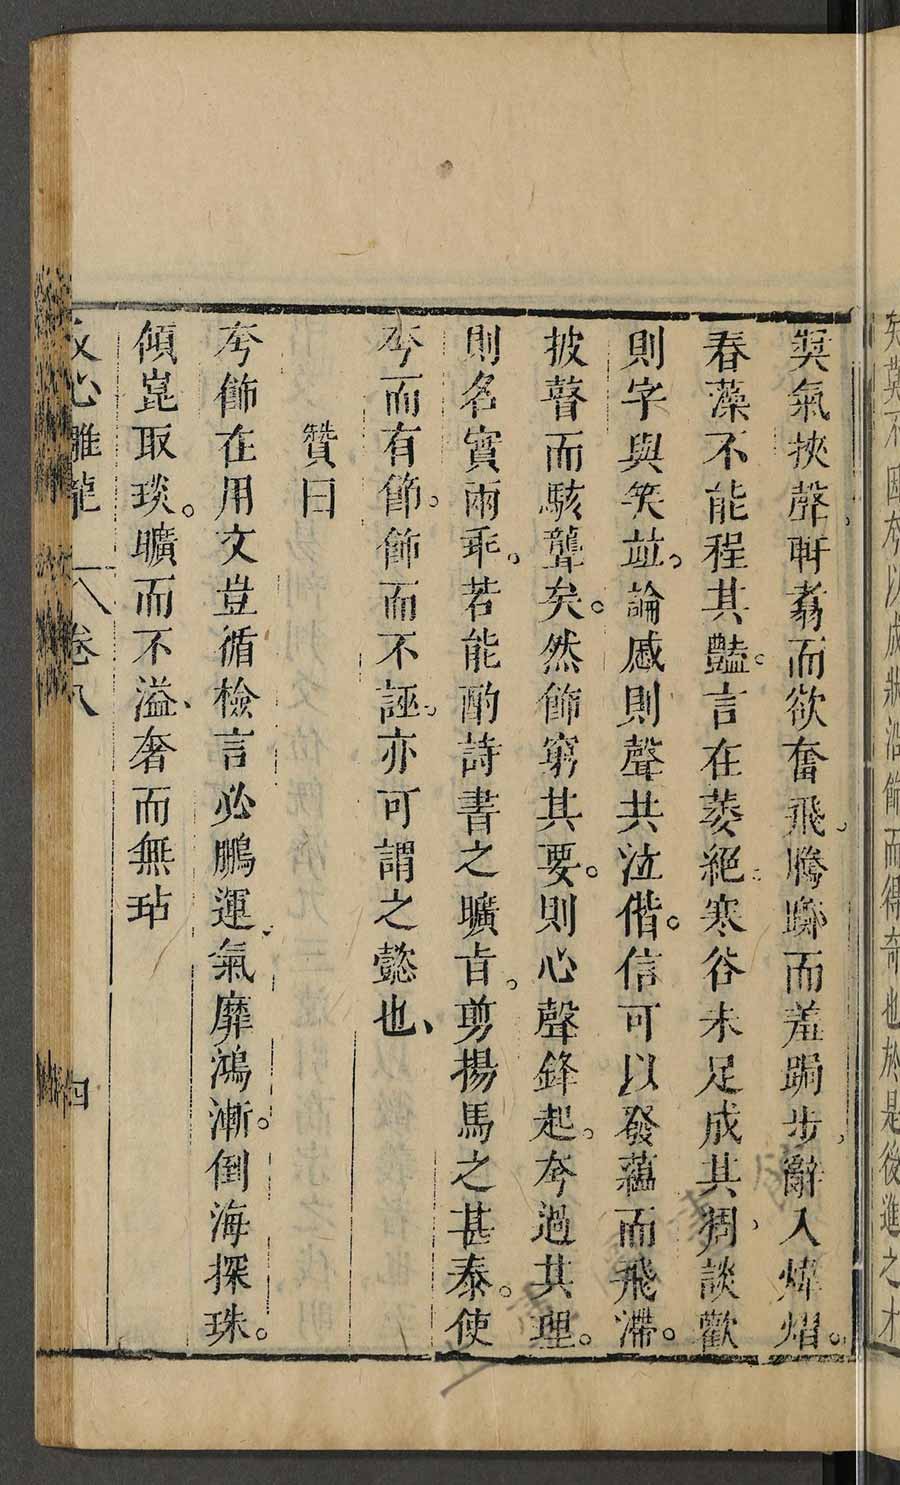 矣莫不因夸以成狀沿飾而得奇也於是後進之才
奬氣挾聲軒翥而欲奮飛騰躑而羞跼步辭入煒燁。
春藻不能程其豔。言在萎絕寒谷未足成其凋談歡
則字與笑竝。論慼則聲共泣偕。信可以發蘊而飛滯。
披瞽而駭聾矣。然飾窮其要。則心聲鋒起。夸過其理。
則名實兩乖。若能酌詩書之曠旨。剪揚馬之甚泰。使
夸而有節。飾而不誣。亦可謂之懿也、
贊曰
夸飾在用文豈循檢言必鵬運氣靡鴻漸。倒海探珠。
傾崑取琰。曠而不溢、奢而無玷
文心雕龍 卷八 四